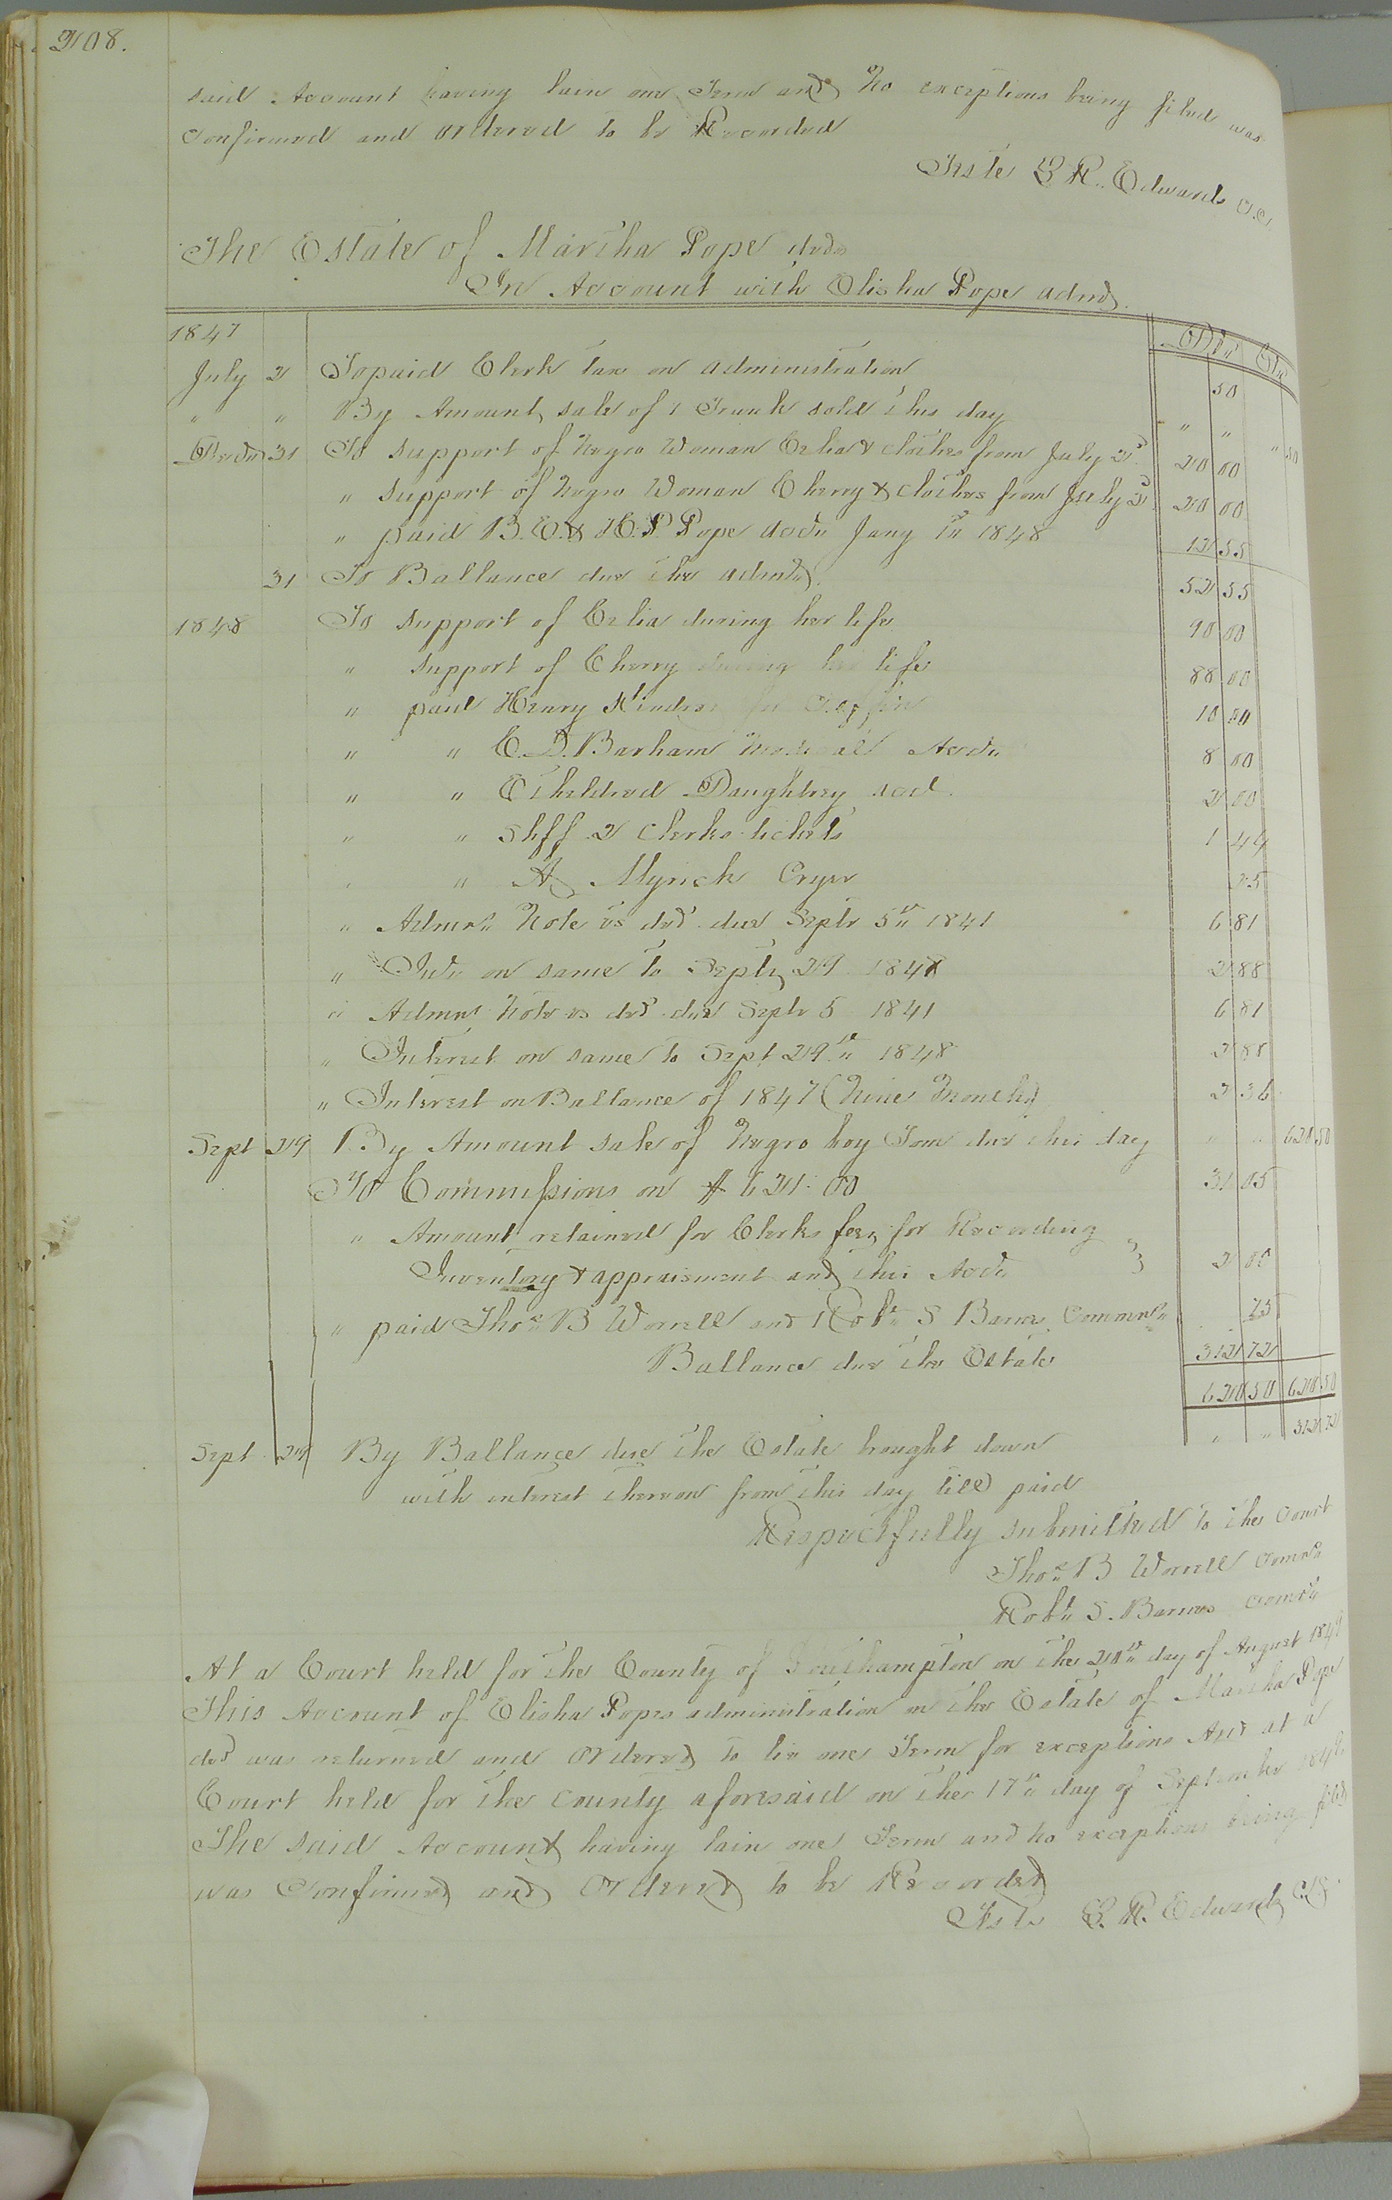 208.
said Account having lain one Term and No exceptions being filed was
Confirmed and Ordered to be Recorded
Teste L R. Edwards C.C.
The Estate of Martha Pope decd.
In Account with Elisha Pope admr.
1847 Dr. Cr.
July 2 To paid Clerk tax on administration 50
" " By Amount, sale of 1 Trunk sold this day " " " 50
Decr. 31 To support of Negro Woman Celia & clothes from July 2d. 20 00
" support of Negro Woman Cherry & clothes from July 2d. 20 00
" paid B. E. & H. P. Pope Acct. Jany 1st 1848 12 55
31 To Ballance due the admr. 52 55
1848 To support of Celia during her life 90 00
" support of Cherry during her life 88 00
" paid Henry for Coffin 10 00
" " E. D. Barham Medical Acct. 8 00
" " Etheldred Daughtrey acct. 2 00
" " Shff 2 Clerks tickets 1 44
" " A Myrick Cryer 25
" Admrs. Note vs decd. due Septr 5th 1841 6 81
" Int. on same to Septr. 29 1848 2 88
" Admrs Note vs decd. due Septr 5 1841 6 81
" Interest on same to Sept 29th 1848 2 88
" Interest on Ballance of 1847 (Nine Months) 2 36
Sept 29 By Amount sale of Negro boy Tom due this day " " 620 50
To Commissions on $621.00 31 05
" Amount retained for Clerks fees, for Recording
Inventory & appraisment and this Acct. 2 00
" paid Thos. B Worrell and Robt. S Barnes, Commrs. 75
Ballance due the Estate 312 72
620 50 620 50
Sept 29 By Ballance due the Estate brought down " " 312 72
with interest thereon from this day till paid
Respectfully submitted to the Court
Thos. B Worrell Comr.
Robt. S. Barnes Comr.
At a Court held for the County of Southampton on the 20th day of August 1849
This Account of Elisha Popes administration on the Estate of Martha Pope
decd was returned and Ordered to lie one Term for exceptions And at a
Court held for the County aforesaid on the 17th day of September 1849
The said Account having lain one Term and no exceptions being filed
was Confirmed and Ordered to be Recorded
Teste L. R. Edwards